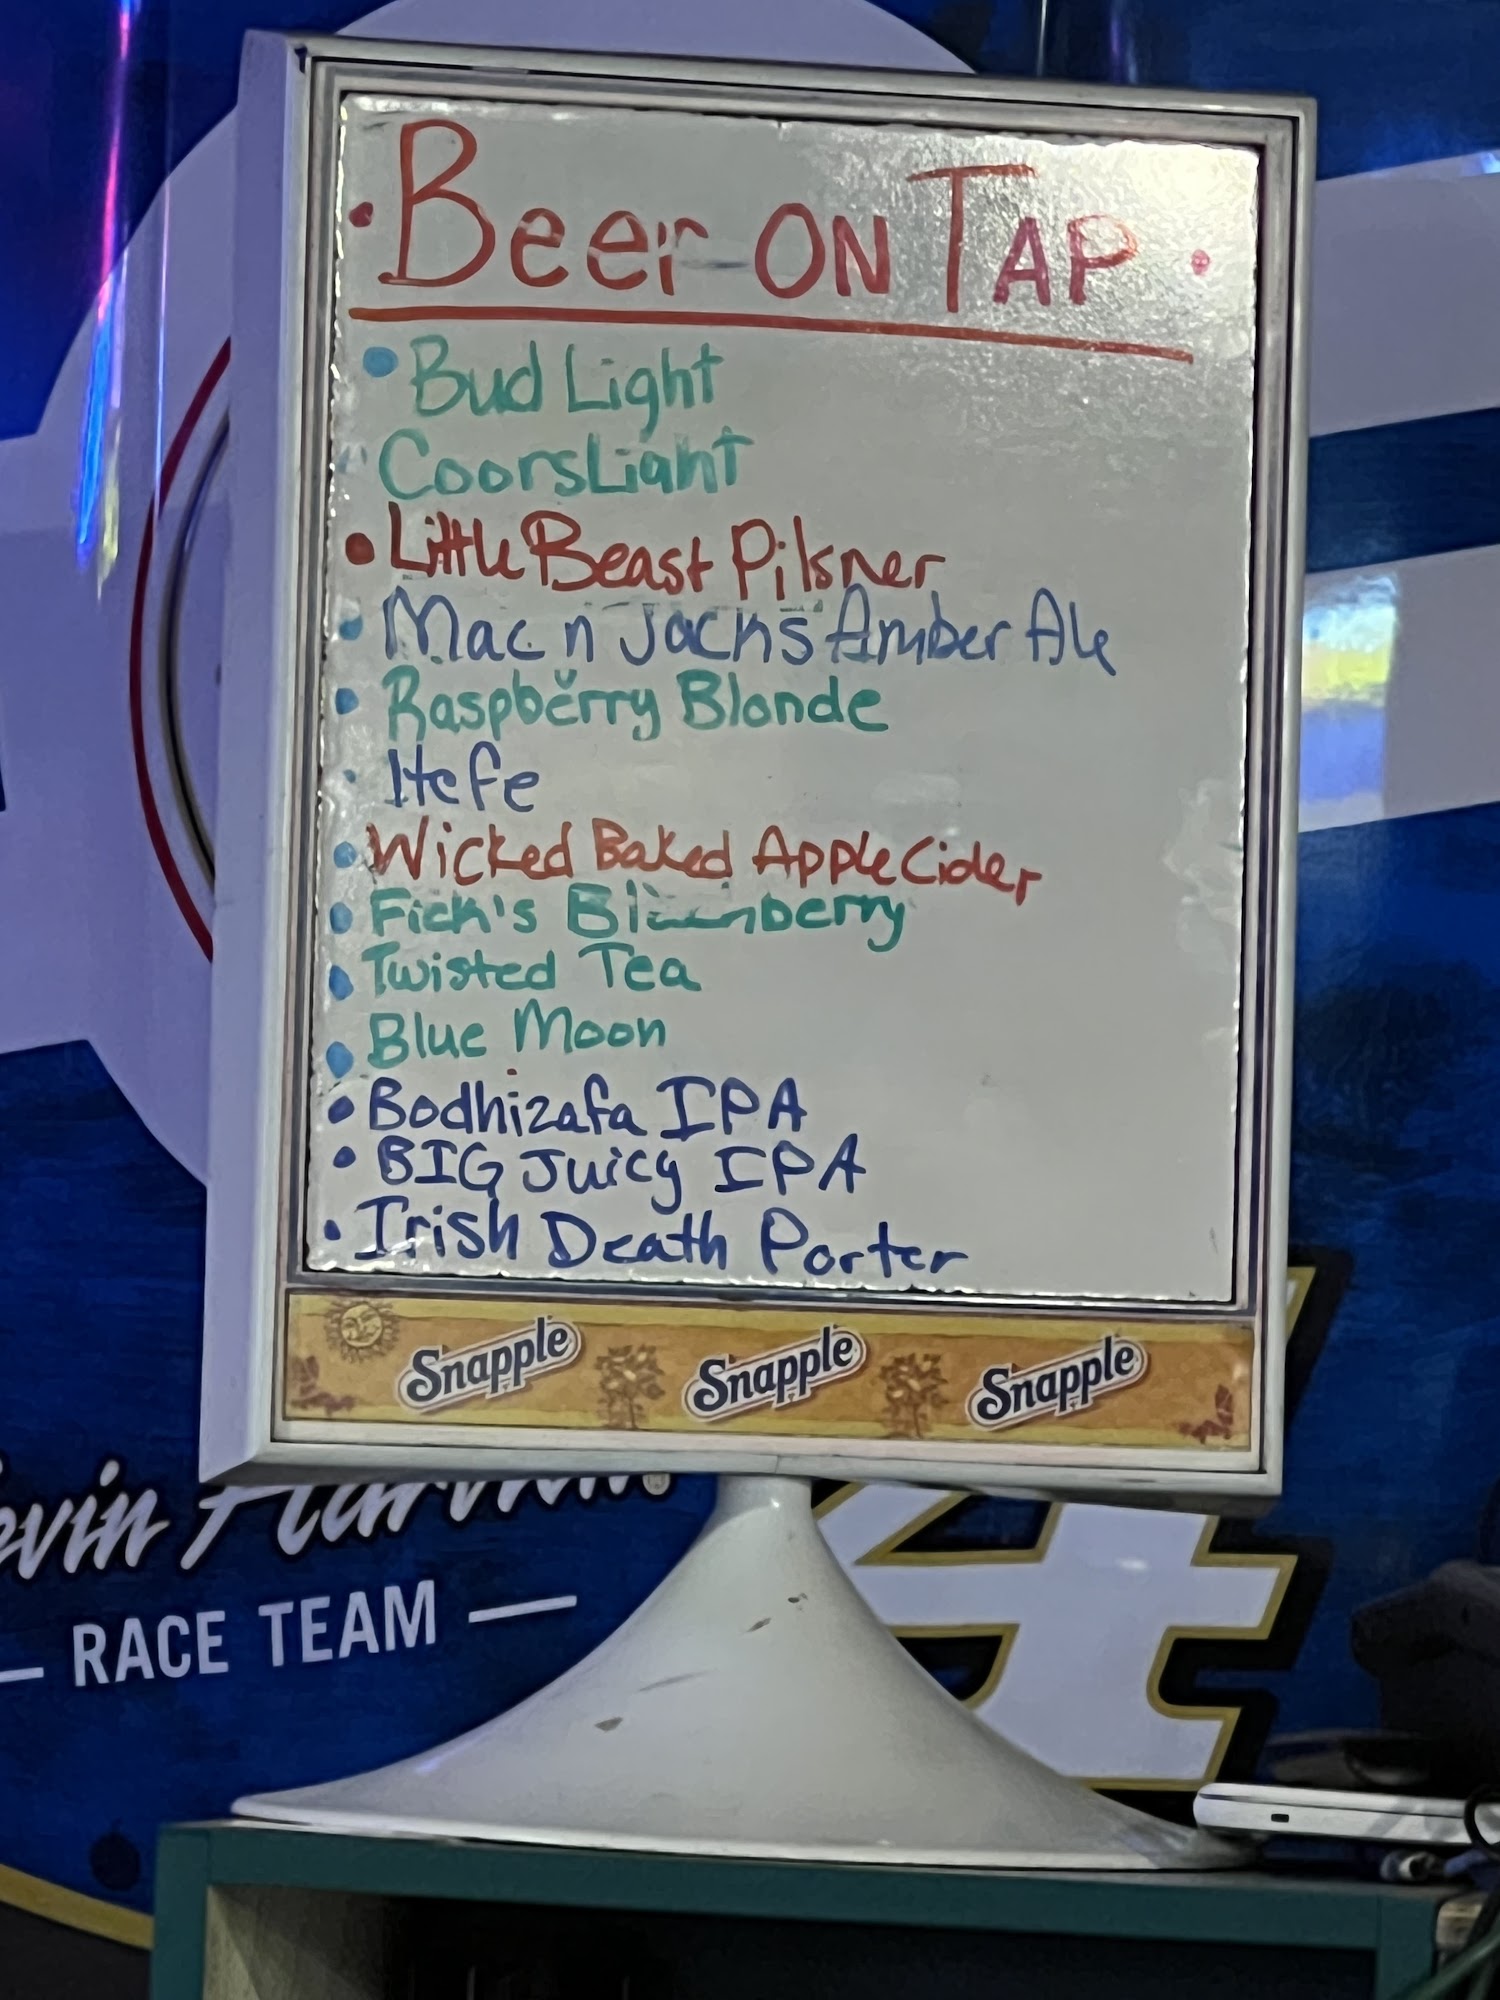 • Beer ON TAP •
• Bud Light
Coors Light
• Little Beast Pilsner
• Mac n Jacks Amber Ale
• Raspberry Blonde
• Hefe
• Wicked Baked Apple Cider
• Fick's
• Twisted Tea
• Blue Moon
• Bodhizafa IPA
• BIG Juicy IPA
• Irish Death Porter
Snapple Snapple Snapple
— RACE TEAM —
4